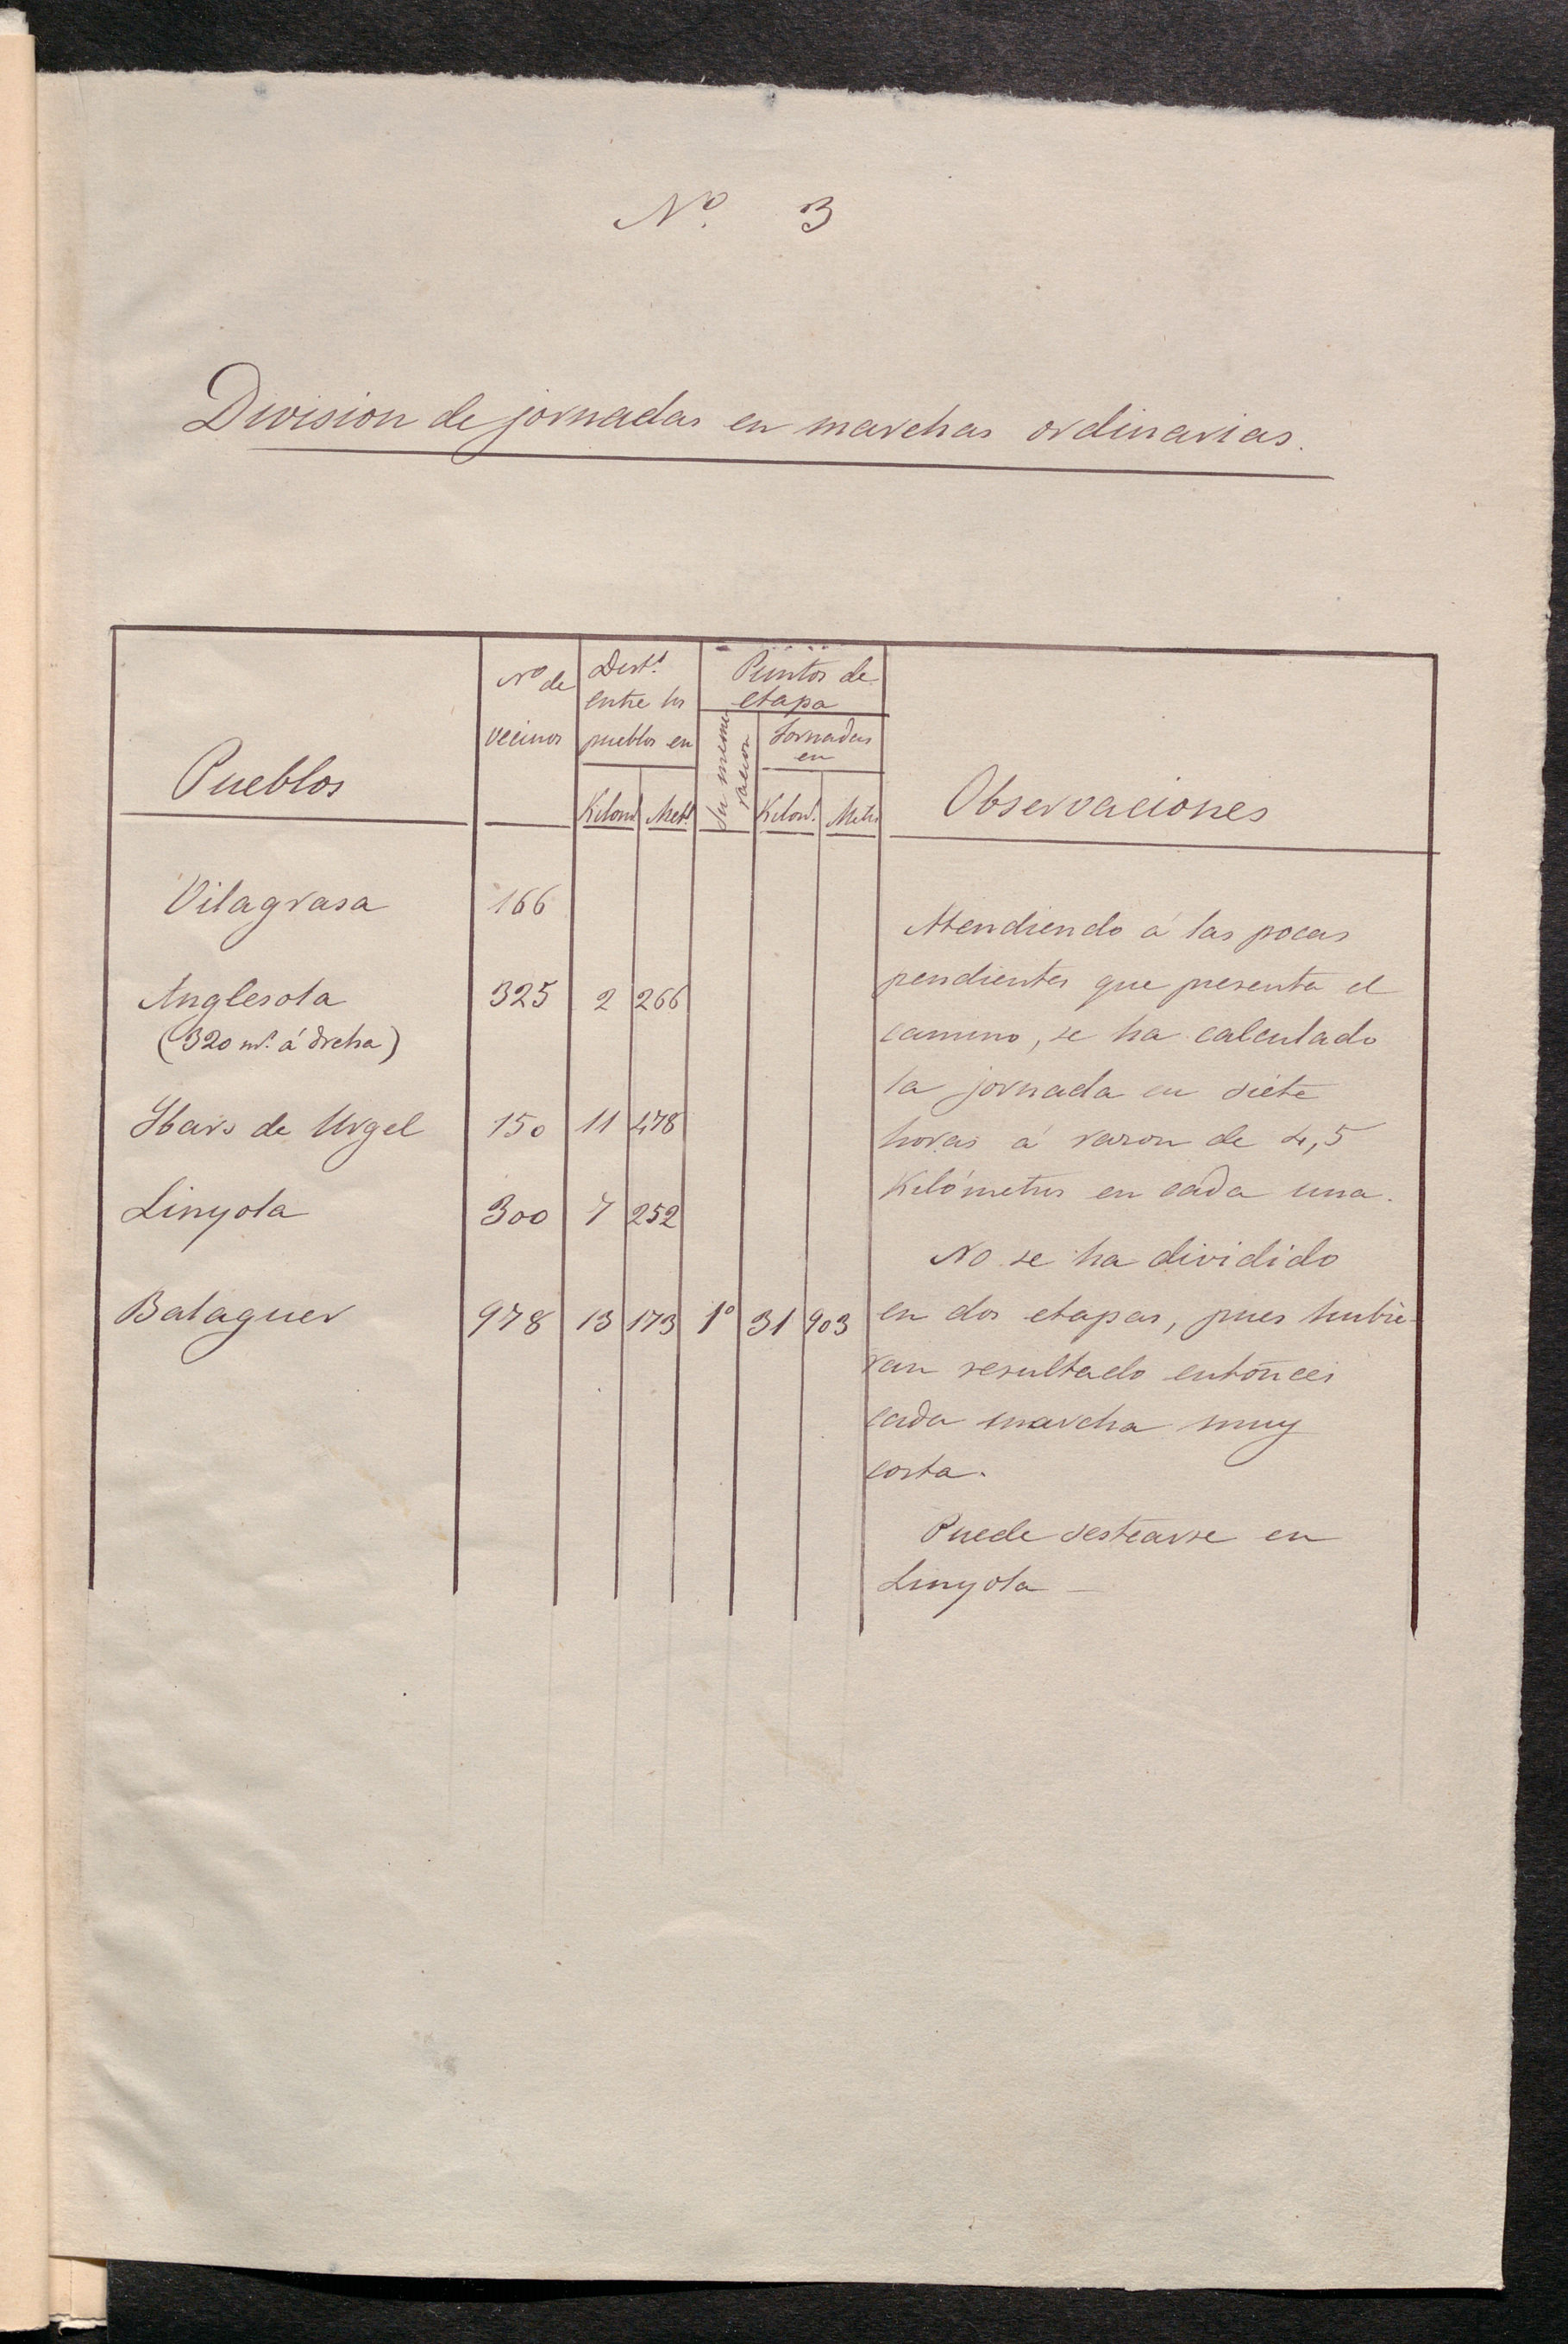 Nº. 3
Division de jornadas en marchas ordinarias.
Pueblos
Nº de
vecinos
Dist.s
entre los
pueblos en
Kilom.s Met.s
Puntos de
etapa
Su nume
racion
Jornadas
en
Kilom.s Metrs
Observaciones
Vilagrasa 166
Anglesola 325 2 266
(320 m.s á drcha)
Ibars de Urgel 150 11 478
Linyola 300 7 252
Balaguer 978 13 173 1º 31 903
Atendiendo á las pocas
pendientes que presenta el
camino, se ha calculado
la jornada en siete
horas á razon de 4,5
Kilómetros en cada una.
No se ha dividido
en dos etapas, pues hubie-
ran resultado entónces
cada marcha muy
corta.
Puede sestearse en
Linyola —